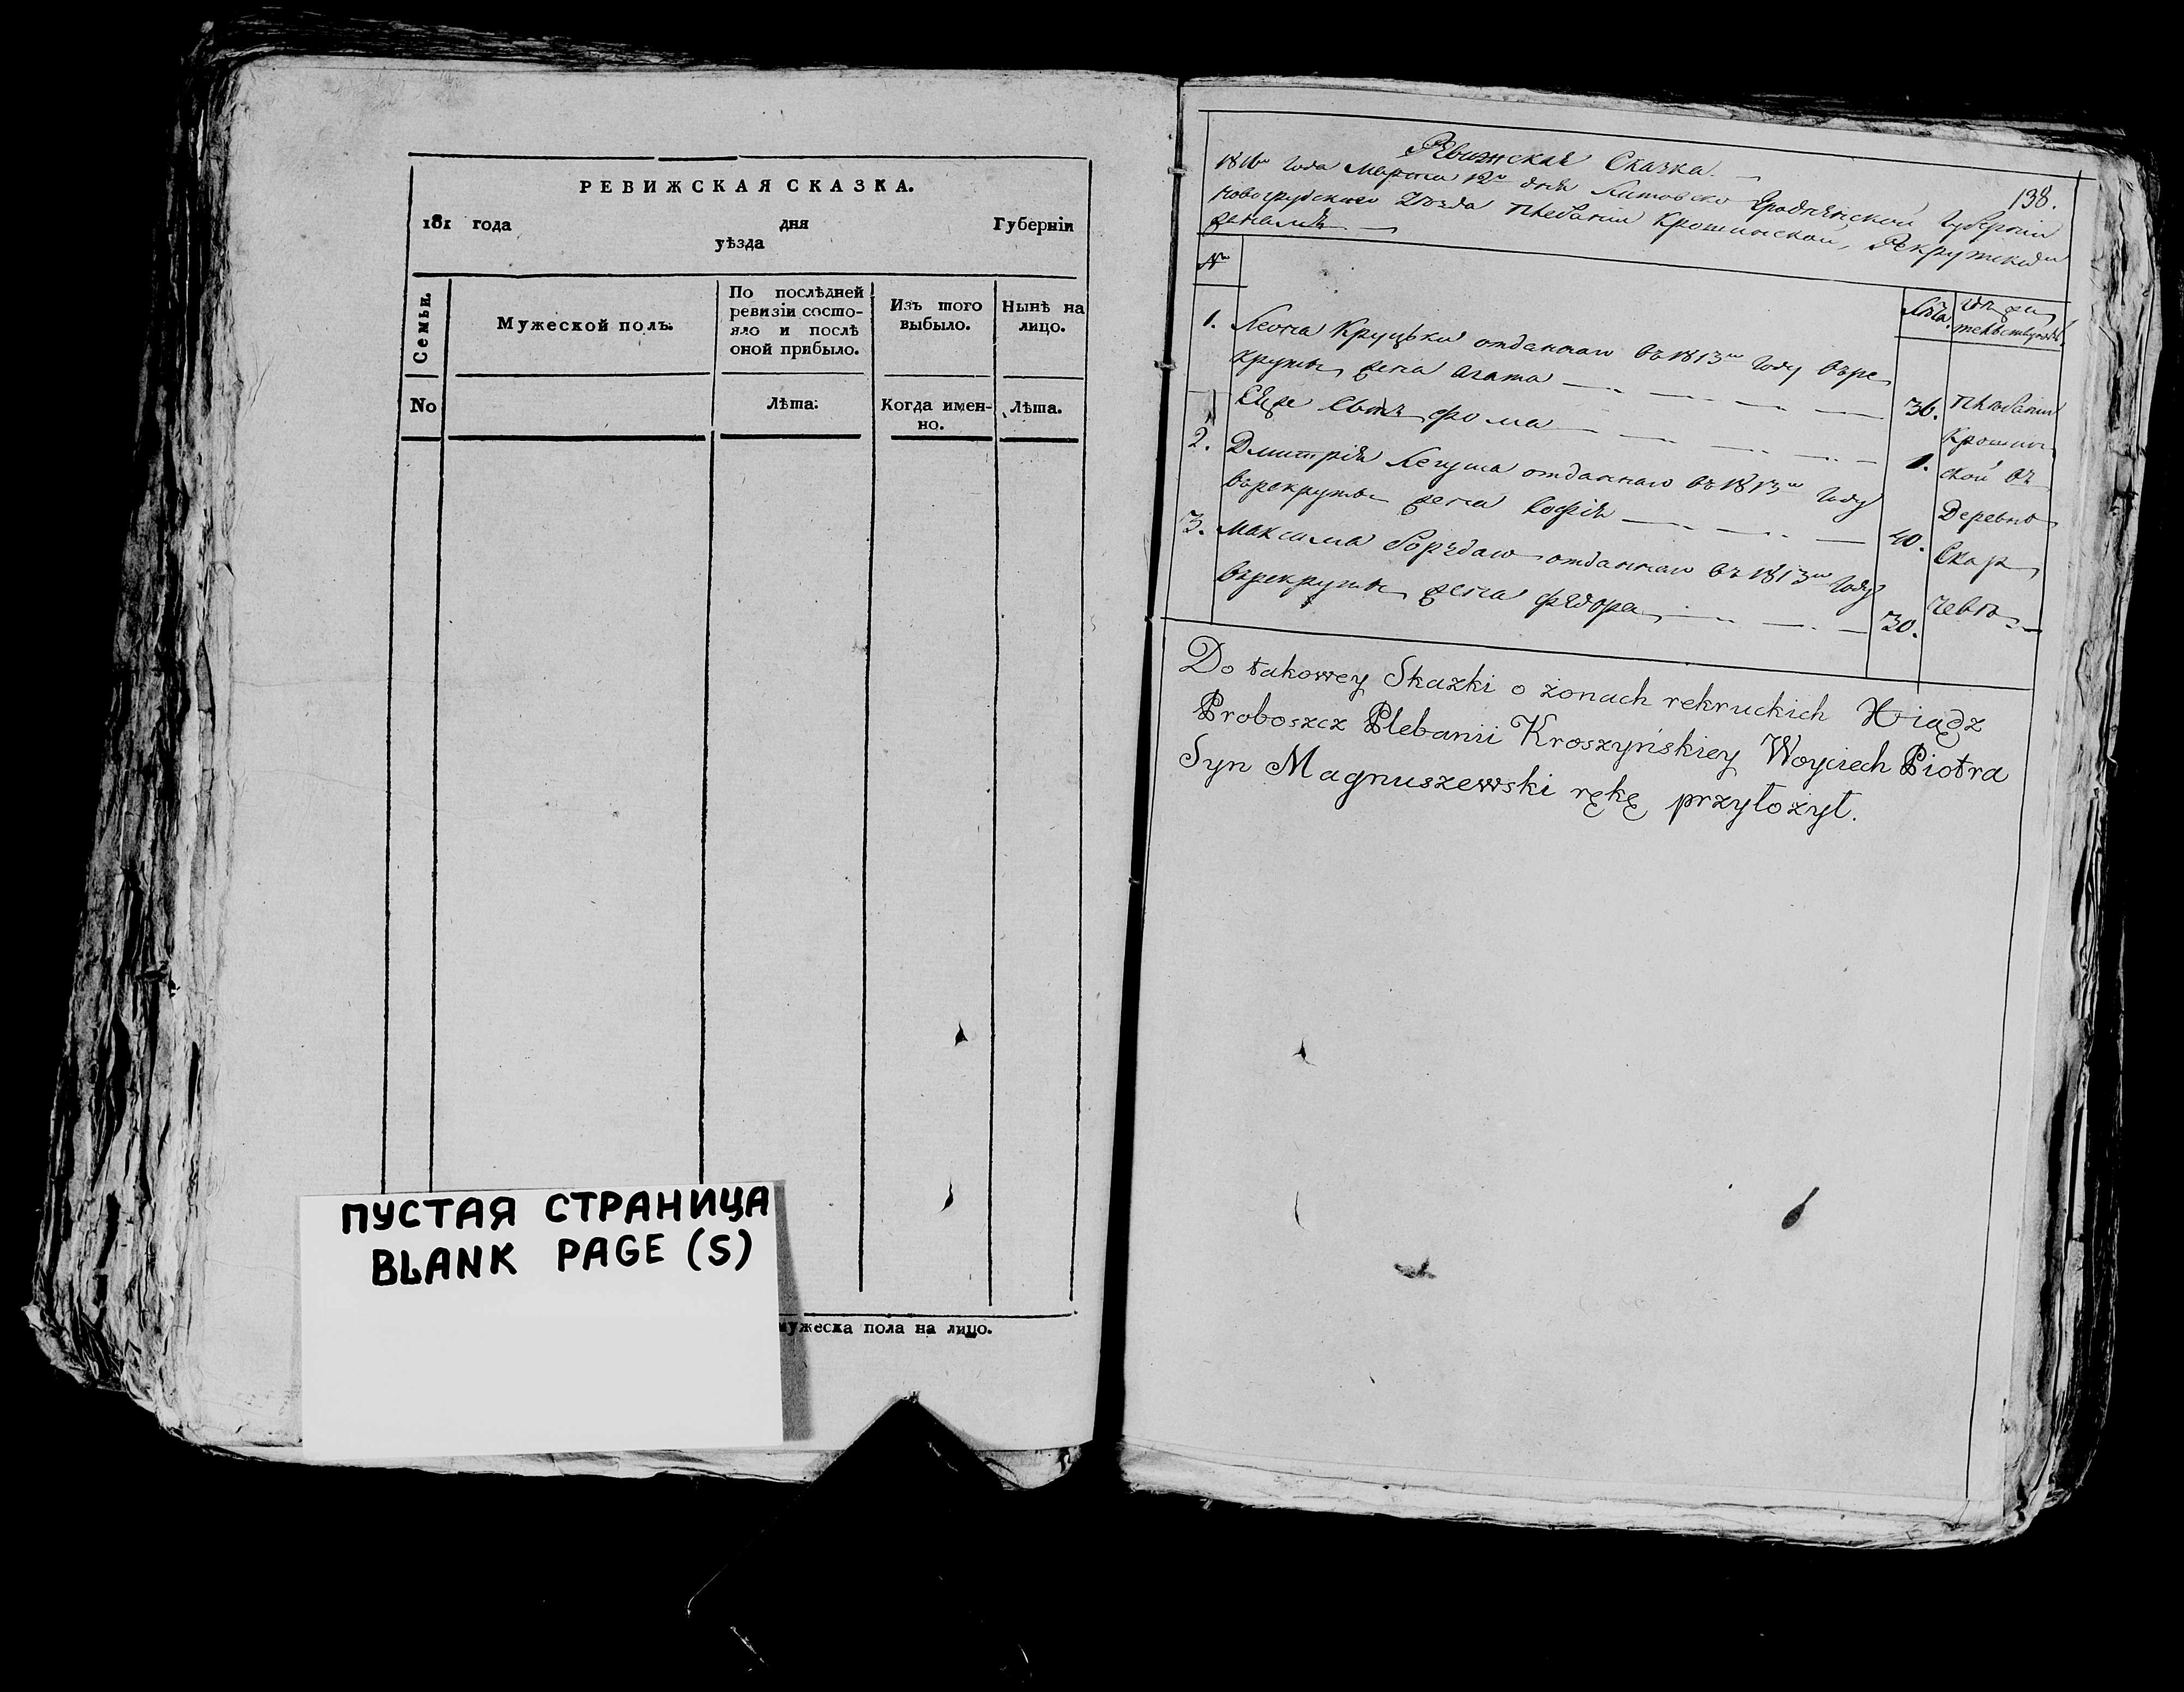 РЕВИЖСКАЯ СКАЗКА.
181 года дня Губернiи
уѣзда
Семьи.
Мужеской полъ.
По послѣдней
ревизiи состо-
яло и послѣ
оной прибыло.
Изъ того
выбыло.
Нынѣ на
лицо.
No
Лѣта.
Когда имен-
но.
Лѣта.
мужеска пола на лицо.
ПУСТАЯ СТРАНИЦА
BLANK PAGE (S)
Ревижская Сказка.
138.
1816го Года Марта 12го дня Литовско Гродненской Губернiи
Новогрудского Уѣзда Плебанiи Крошинской, Рекрутскимъ
женамъ
№
Лѣта.
1. Леона Круцьки отданнаго въ 1813м Году въ ре
круты жена Агата 36.
Ея же Сынъ Фома 1.
2. Дмитрiя отданнаго въ 1813м Году
въ рекруты жена Софiя 40.
3. Максима отданнаго въ 1813м Году
въ рекруты жена Федора 30.
Плебанiи
Крошин
ской въ
Деревнѣ
Скар
чевѣ
Do takowey Skazki o żonach rekruckich Xiądz
Proboszcz Plebanii Kroszyńskiey Woyciech Piotra
Syn Magnuszewski rękę przyłożył.